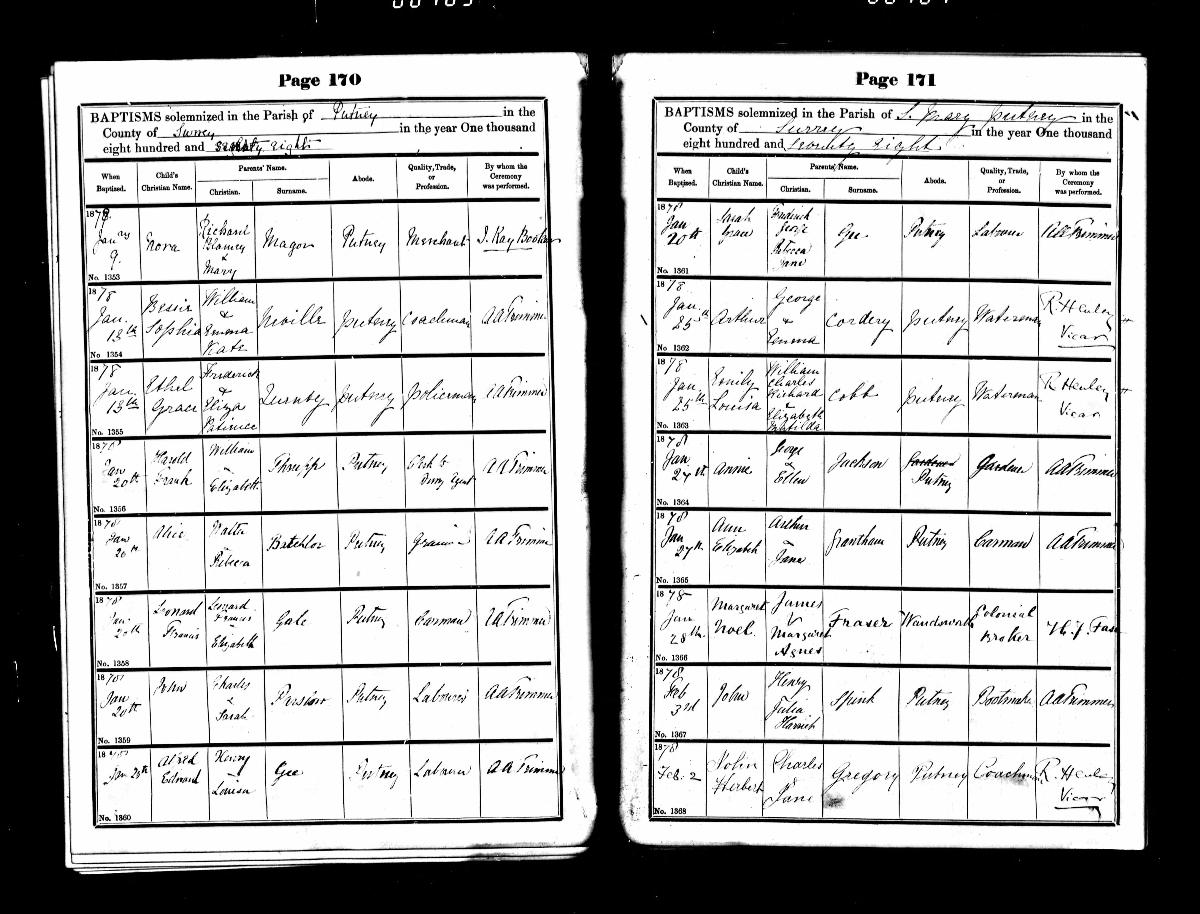 Page 170
BAPTISMS solemnized in the Parish of Putney in the
County of Surrey in the year One thousand
eight hundred and seventy eight
When Baptized. Child's Christian Name. Parents' Name. Christian. Surname. Abode. Quality, Trade, or Profession. By whom the Ceremony was performed.
1878 January 9. Nora Richard Blamey & Mary Magor Putney Merchant J. Kay Booker
No. 1353
1878 Jan. 13th Bessie Sophia William & Emma Kate Neville Putney Coachman A A Trimmer
No. 1354
1878 Jan. 13th Ethel Grace Frederick & Eliza Patience Putney Policeman A A Trimmer
No. 1355
1878 Jan 20th Harold Frank William & Elizabeth Thrupp Putney Clerk to Agent A A Trimmer
No. 1356
1878 Jan 20th Alice Walter & Rebecca Batchlor Putney A A Trimmer
No. 1357
1878 Jan 20th Leonard Francis Leonard Francis & Elizabeth Gale Putney Carman A A Trimmer
No. 1358
1878 Jan 20th John Charles & Sarah Putney Labourer A A Trimmer
No. 1359
1878 Jan 20th Alfred Edward Henry & Louisa Gee Putney Labourer A A Trimmer
No. 1360
Page 171
BAPTISMS solemnized in the Parish of S. Mary Putney in the
County of Surrey in the year One thousand
eight hundred and seventy eight
When Baptized. Child's Christian Name. Parents' Name. Christian. Surname. Abode. Quality, Trade, or Profession. By whom the Ceremony was performed.
1878 Jan 20th Sarah Grace Frederick George & Rebecca Jane Gee Putney Labourer A A Trimmer
No. 1361
1878 Jan. 25th Arthur George & Emma Cordery Putney Waterman R. Henley Vicar
No. 1362
1878 Jan. 25th Emily Louisa William Charles Richard & Elizabeth Matilda Cobb Putney Waterman R. Henley Vicar
No. 1363
1878 Jan 27th Annie George & Ellen Jackson Gardener Putney Gardener A A Trimmer
No. 1364
1878 Jan 27th Ann Elizabeth Arthur & Jane Grantham Putney Carman A A Trimmer
No. 1365
1878 Jan 28th. Margaret Noel. James & Margaret Agnes Fraser Wandsworth Colonial Broker
No. 1366
1878 Feb 3rd John Henry & Julia Harriet Spink Putney Bootmaker A A Trimmer
No. 1367
1878 Feb. 2 Herbert Charles & Jane Gregory Putney Coachman R. Henley Vicar
No. 1368